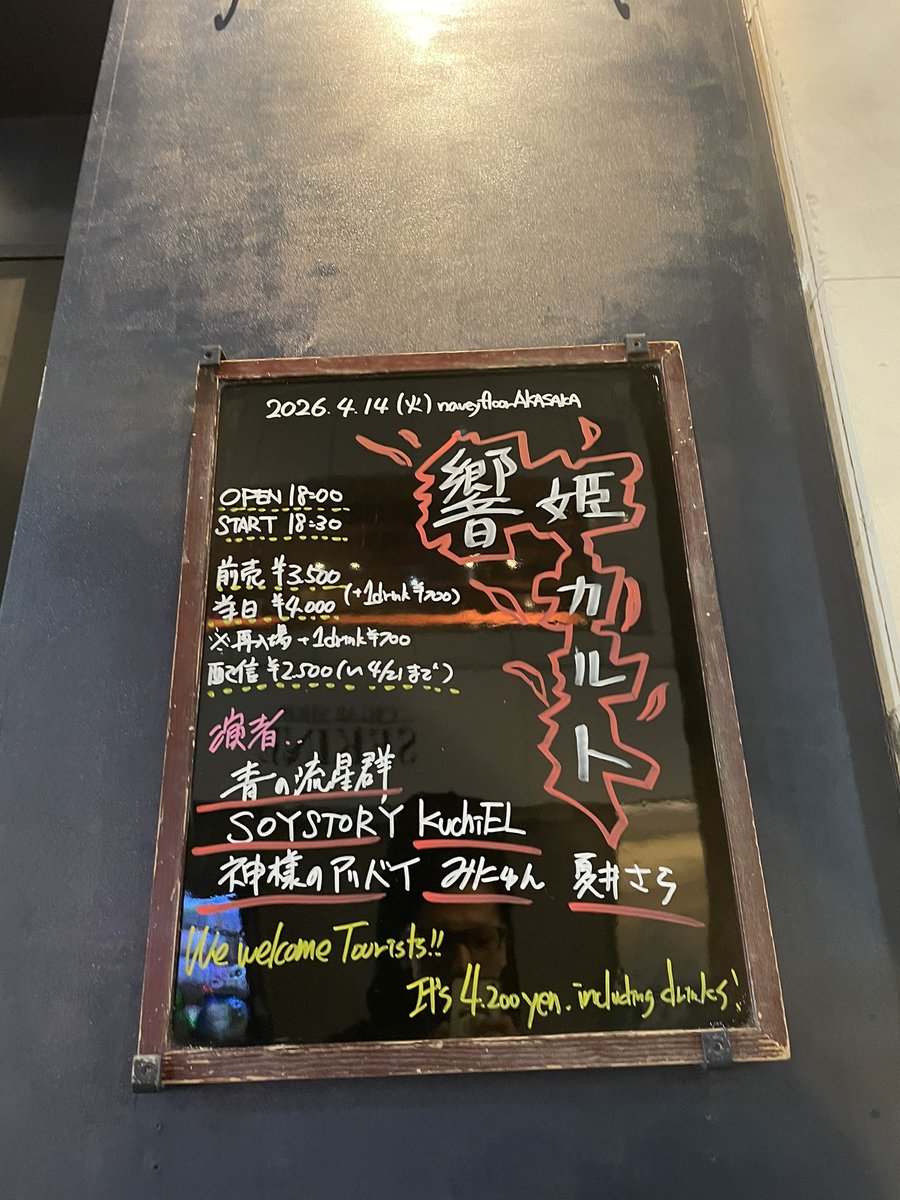 2026.4.14(火) naveyfloorAKASAKA
響姫カルト
OPEN 18:00
START 18:30
前売 ¥3.500
当日 ¥4.000 (+1drink¥700)
※再入場+1drink¥700
配信 ¥2.500(い4/21まで)
演者..
青の流星群
SOYSTORY KuchiEL
神様のアリバイ みにゅん 夏井さら
We welcome Tourists!!
It's 4.200yen. including drinks!